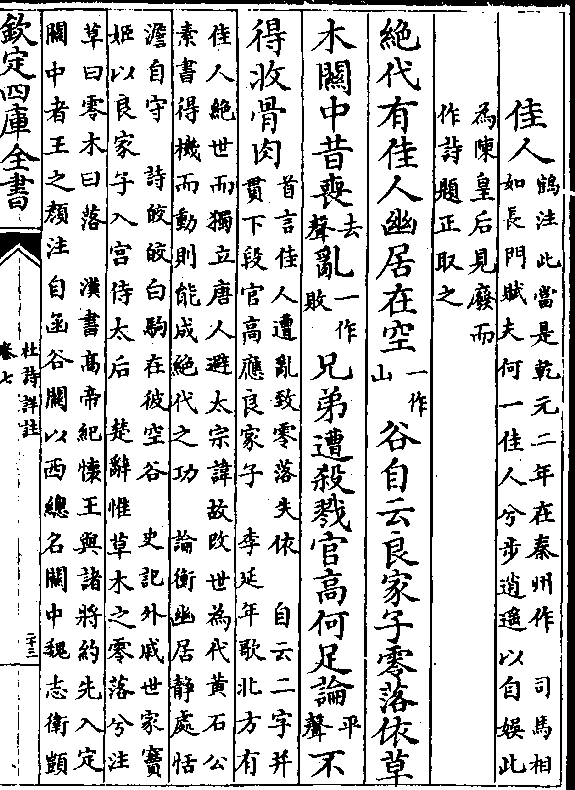 佳人鶴注此當是乾元二年在秦州作 司馬相
如長門賦夫何一佳人兮步逍遙以自娛此
為陳皇后見廢而
作詩題正取之
絶代有佳人幽居在空一作山谷自云良家子零落依草
木關中昔喪去聲亂一作敗兄弟遭殺戮官高何足論平聲不
得收骨肉首言佳人遭亂致零落失依 自云二字并
貫下段官高應良家子 李延年歌北方有
佳人絶世而獨立唐人避太宗諱故改世為代黄石公
素書得機而動則能成絶代之功 論衡幽居静處恬
澹自守 詩皎皎白駒在彼空谷 史記外戚世家竇
姬以良家子入宫侍太后 楚辭惟草木之零落兮注
草曰零木曰落 漢書高帝紀懷王與諸將約先入定
關中者王之顔注自函谷關以西總名關中魏志衛顗
欽定四庫全書
杜詩詳註
卷七
二十三